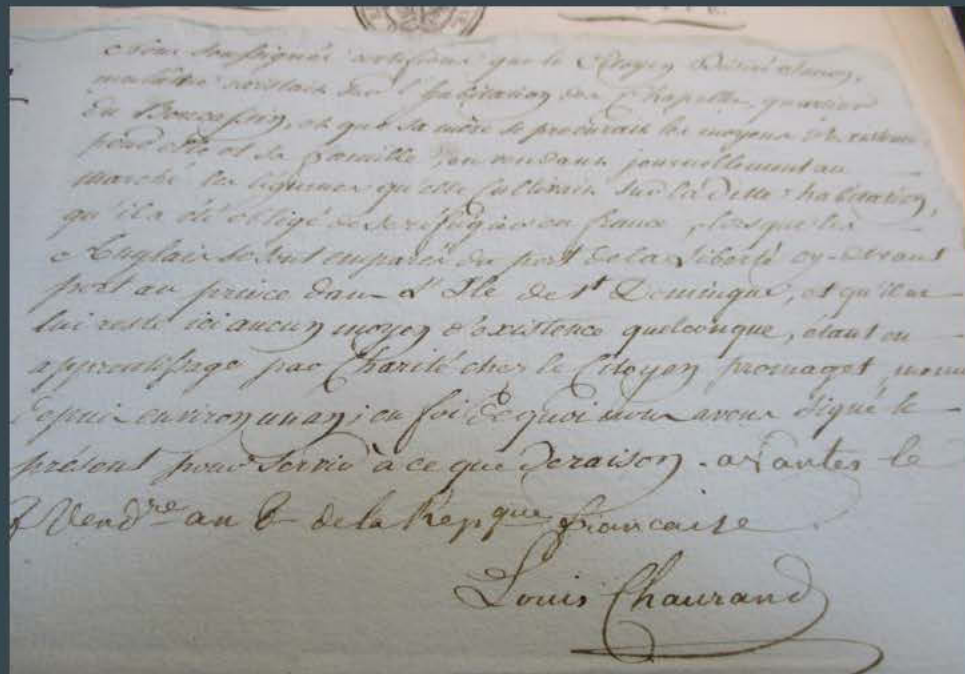 Nous soussignés certifions que le Citoyen Désiré
mulâtre résidait sur l'habitation de la Chapelle, quartier
du Boucassin, et que sa mère se procurait les moyens
pour elle et sa famille en vendant journellement au
marché les légumes qu'elle cultivait sur la ditte habitation,
qu'il a été obligé de se réfugier en france, lorsque les
Anglais se sont emparés du port de la Liberté cy-devant
port au prince dans L'Ile de St Domingue, et qu'il ne
lui reste ici aucun moyen d'existence quelconque, étant en
apprentissage par Charité chez le Citoyen fromaget,
depuis environ un an; en foi de quoi nous avons signé le
présent pour servir à ce que de raison. a Nantes le
Vendre an 6 de la Repque francaise
Louis Chaurand